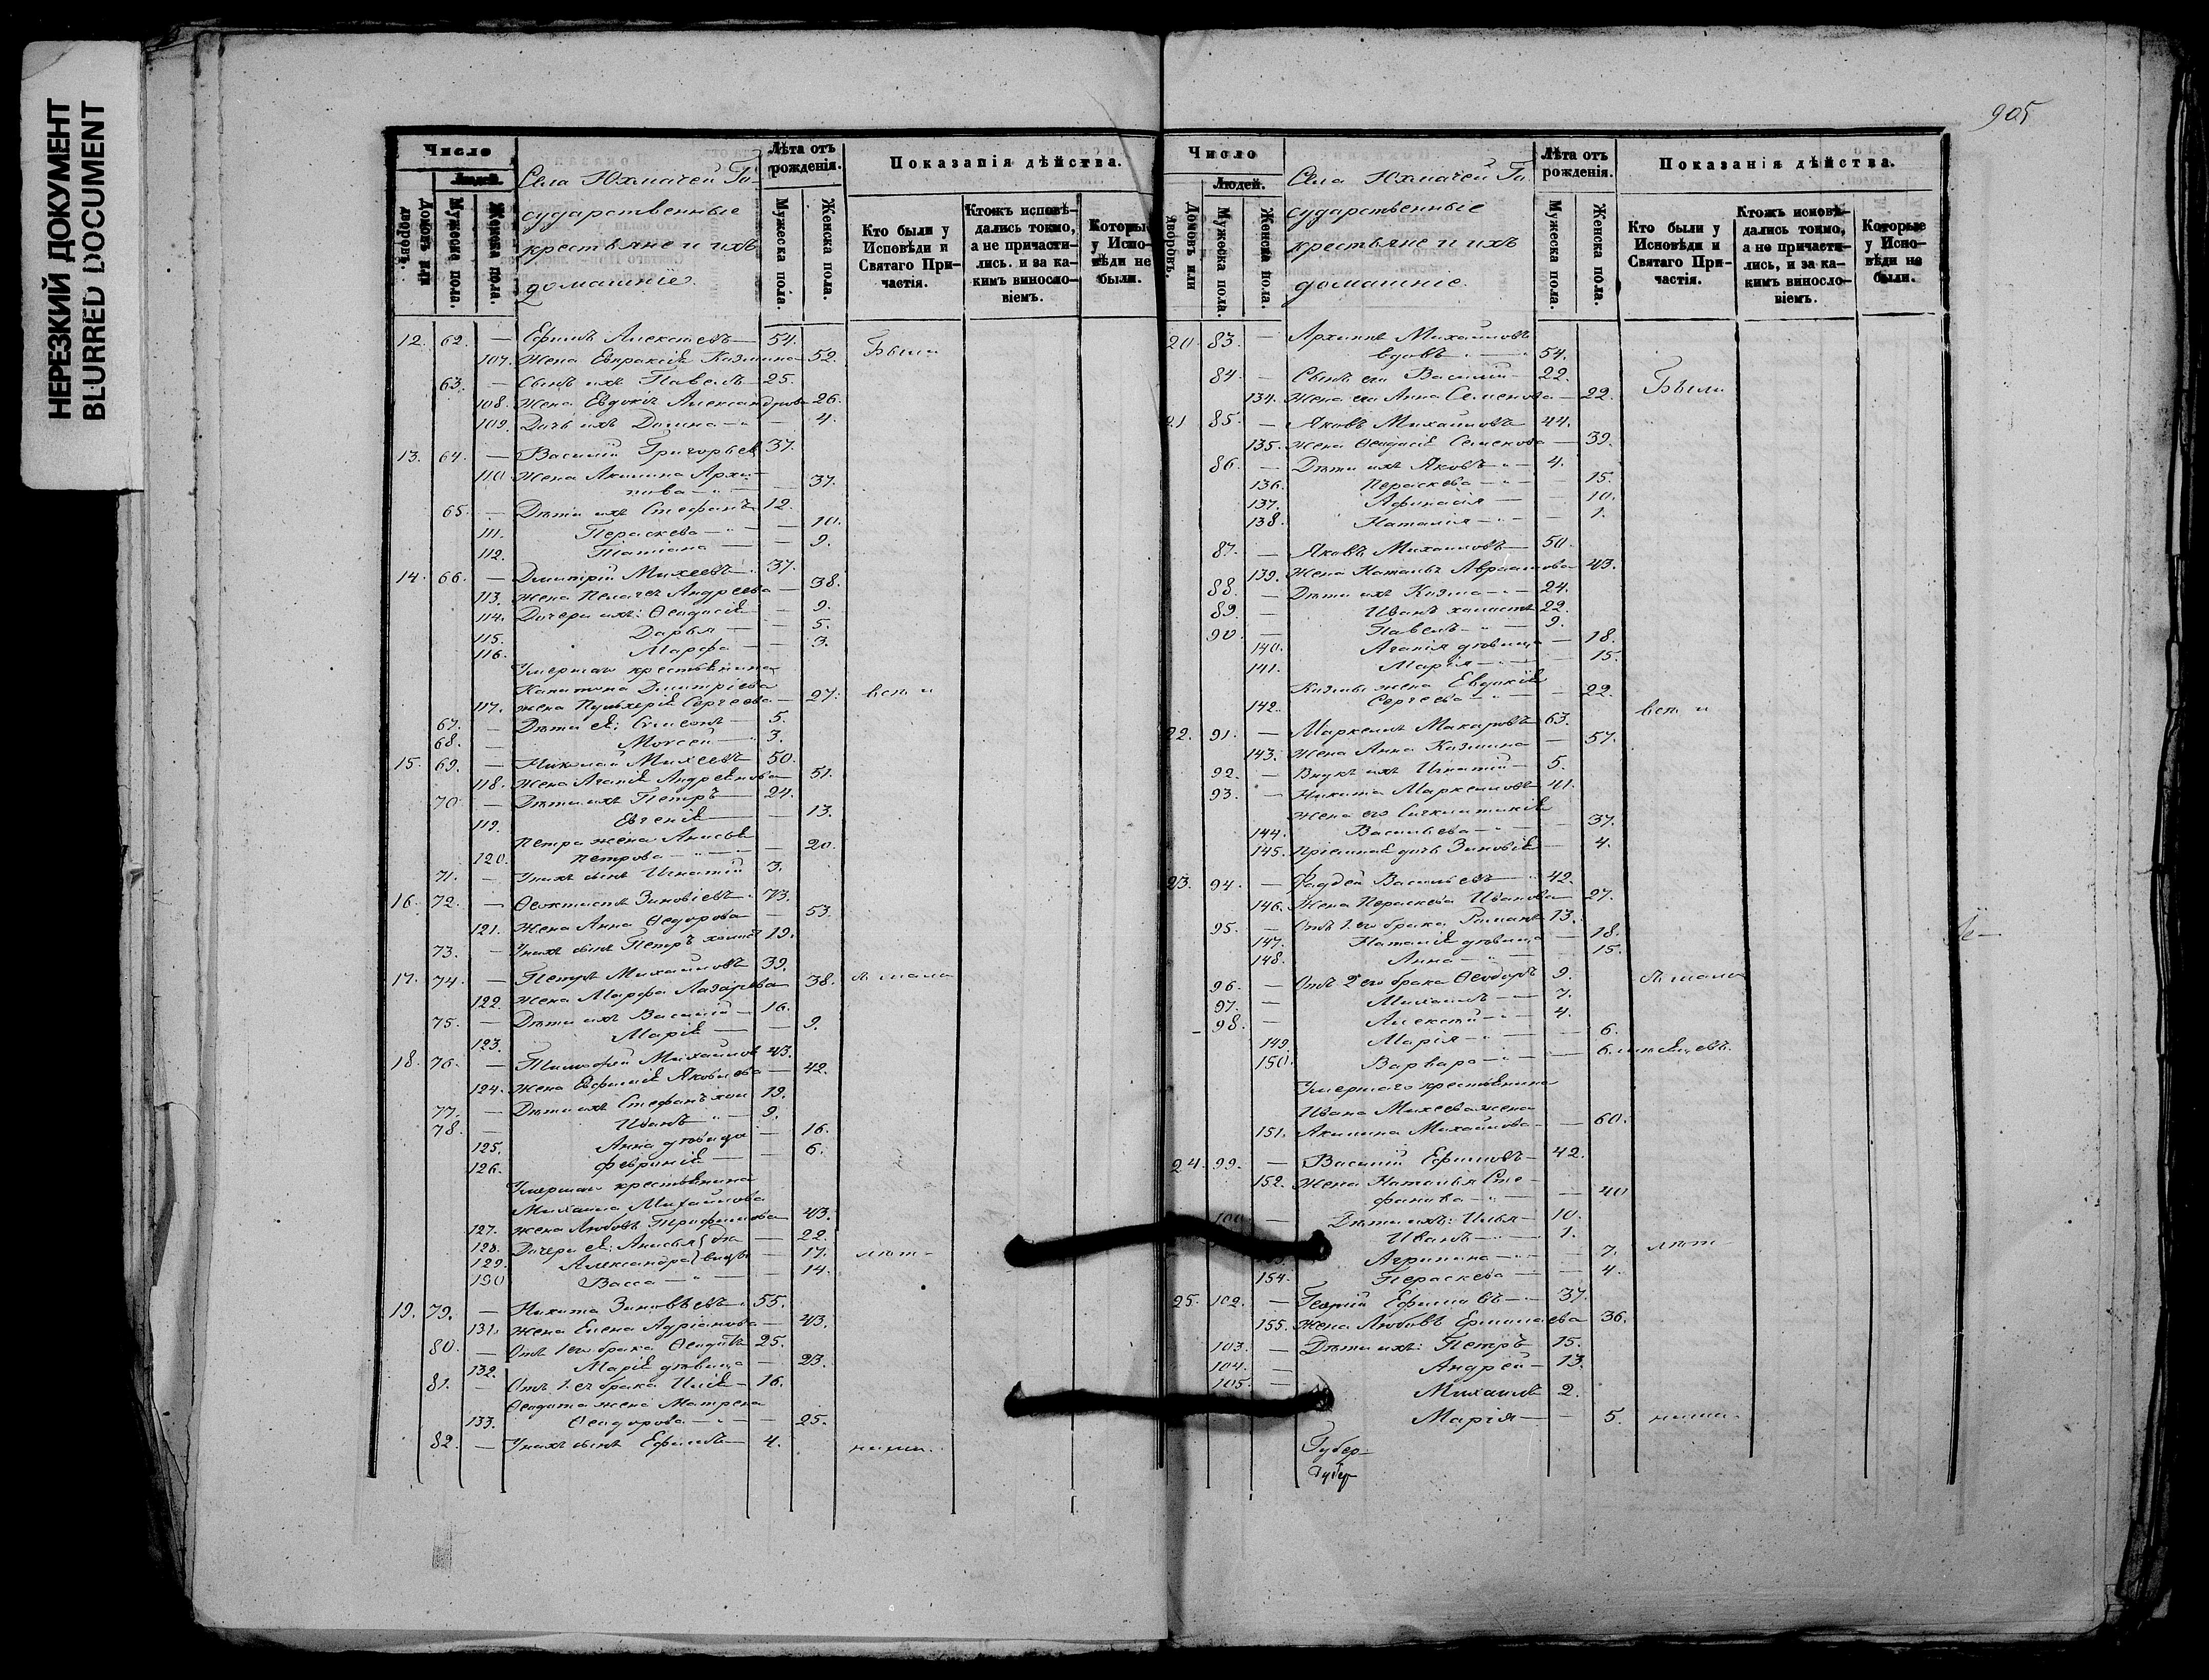 НЕРЕЗКИЙ ДОКУМЕНТ
BLURRED DOCUMENT
905
Число
Людей.
Домовъ или дворовъ.
Мужеска пола.
Женска пола.
Села Юхмачей Го-
сударственные
крестьяне и ихъ
домашніе.
Лѣта отъ рожденія.
Мужеска пола.
Женска пола.
Показанія дѣйства.
Кто были у Исповѣди и Святаго Причастія.
Ктожъ исповѣ-
дались токмо,
а не причасти-
лись. и за ка-
кимъ винословіемъ.
Которые у Исповѣди не были.
12. 62. — Ефимъ Алексѣевъ — 54.
107. Жена Евпраксія Казмина 52. Были
63. — Сынъ ихъ Павелъ — 25.
108. Жена Евдокія Александрова 26.
109. Дочь ихъ Домна — 4.
13. 64. — Василій Григорьевъ 37.
110. Жена Акилина Архи-
пова — 37.
65. — Дѣти ихъ Стефанъ 12.
111. Пераскева — 10.
112. Татіана — 9.
14. 66. — Дмитрій Михеевъ — 37.
113. Жена Пелагея Андреева — 38.
114. Дочери ихъ: Ѳеодосія — 9.
115. Дарья — 5.
116. Марфа — 3.
Умершаго крестьянина
Капитона Дмитріева
117. жена Пульхерія Сергеева — 27. всѣ и
67. — Дѣти ея: Симеонъ — 5.
68. — Моѵсей — 3.
15. 69. — Николай Михеевъ 50.
118. Жена Агапія Андреянова 51.
70. — Дѣти ихъ Петръ — 24.
119. Евгенія — 13.
Петра жена Анисья
120. Петрова — 20.
71. — У нихъ сынъ Игнатій 3.
16. 72. — Ѳеоктистъ Зиновіевъ 73.
121. Жена Анна Ѳедорова — 53.
73. — У нихъ сынъ Петръ холост 19.
17. 74. — Петръ Михайловъ 39.
122. Жена Марфа Лазарева 38.
75. — Дѣти ихъ Василій — 16.
123. Марія — 9.
18. 76. — Тимофей Михайлов 43.
124. Жена Евфимія Яковлева — 42.
77. — Дѣти ихъ Стефанъ хол 19.
78. — Иванъ — 9.
125. Анна дѣвица — 16.
126. Февронія — 6.
Умершаго крестьянина
Михаила Михайлова
127. жена Любовь Трифонова 43.
128. Дочери ея: Анисья } дѣ 22.
129. Александра } вицы 17. лѣт-
130 Васса — 14.
19. 79. — Никита Зиновьевъ. 55.
131. Жена Елена Адріанова — 43.
80. — Отъ 1 его брака Ѳеодотъ 25.
132. Марія дѣвица — 23.
81. — Отъ 1. ея брака Илія — 16.
Ѳеодота жена Матрена
133. Ѳеодорова — 25.
82. — У нихъ сынъ Ефимъ — 4. ними.
Число
Людей.
Домовъ или дворовъ.
Мужеска пола.
Женска пола.
Села Юхмачей Го-
сударственные
крестьяне и ихъ
домашніе.
Лѣта отъ рожденія.
Мужеска пола.
Женска пола.
Показанія дѣйства.
Кто были у Исповѣди и Святаго Причастія.
Ктожъ исповѣ-
дались токмо,
а не причасти-
лись, и за ка-
кимъ винословіемъ.
Которые у Исповѣди не были.
20. 83. — Архиппъ Михайловъ
вдовъ — 54.
84. — Сынъ его Василій — 22. Были
134. Жена его Анна Семенова — 22.
21 85. — Яковъ Михайловъ 44.
135. Жена Ѳеодосія Семенова — 39.
86. — Дѣти ихъ Яковъ — 4.
136. Пераскева — 15.
137. Афанасія — 10.
138. Наталія — 1.
87. — Яковъ Михайловъ — 50.
139. Жена Наталья Авраамова 43.
88. — Дѣти ихъ Козма — 24.
89. — Иванъ холостъ 22.
90. — Павелъ — 9.
140. Агапія дѣвица — 18.
141. Марія — 15.
Козмы жена Евдокія
142. Сергеева — 22. всѣ и
22. 91. — Маркеллъ Макаровъ 63.
143. Жена Анна Казмина — 57.
92. — Внукъ ихъ Игнатій — 5.
93. — Никита Маркелловъ 41.
Жена его Синклитикія
144. Васильева — 37.
145. Пріемная дочь Зиновія — 4.
23. 94. — Фаддей Васильевъ — 42.
146. Жена Пераскева Иванова 27.
95. — Отъ 1. его брака Романъ 13.
147. Наталія дѣвица — 18.
148. Анна — 15.
96. — Отъ 2 его брака Ѳеодоръ 9.
97. — Михаилъ — 7.
98. — Алексѣй — 4.
149. Марія — 6.
150. Варвара — 6. мѣсяцевъ.
Умершаго крестьянина
Ивана Михеева жена
151. Акилина Михайлова — 60.
24. 99. — Василій Ефимовъ — 42.
152. Жена Наталья Сте-
фанова — 40
100 — Дѣти ихъ: Илья — 10.
Иванъ — 1.
Агрипина — 7. лѣт-
154. Пераскева — 4.
25. 102. — Георгій Ефимовъ — 37.
155. Жена Любовь Ермолаева 36.
103. — Дѣти ихъ: Петръ 15.
104. — Андрей — 13.
105. — Михаилъ 2.
Марія — 5. ними.
Губер-
Губер